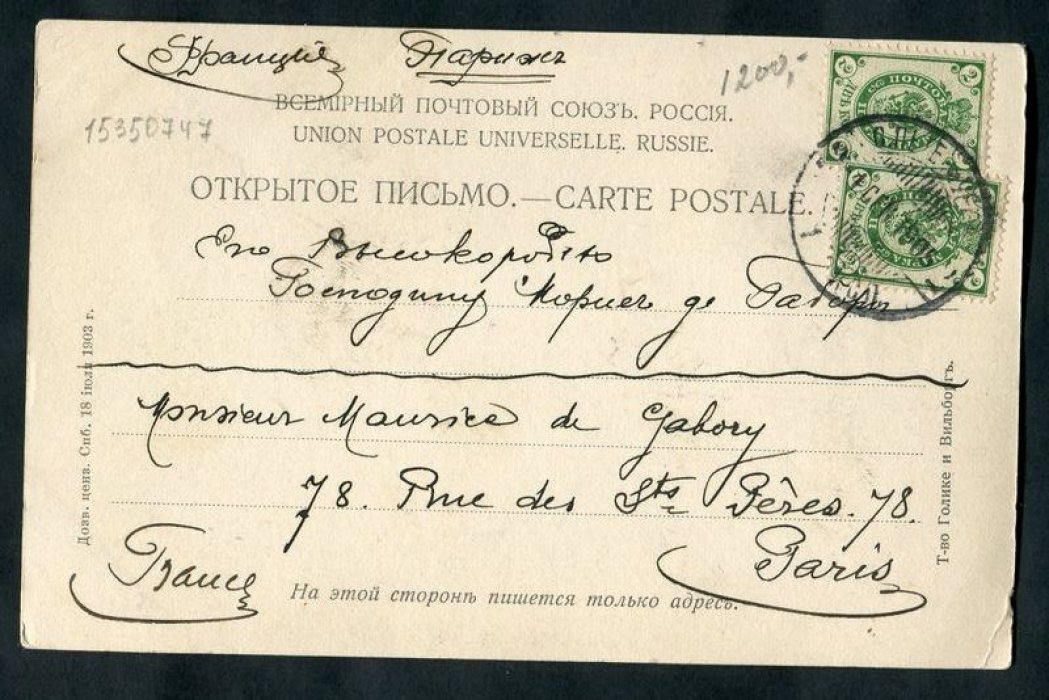 Франція Парижъ
1200,-
15350747
ВСЕМІРНЫЙ ПОЧТОВЫЙ СОЮЗЪ. РОССІЯ.
UNION POSTALE UNIVERSELLE. RUSSIE.
ОТКРЫТОЕ ПИСЬМО.—CARTE POSTALE.
Его Высокородію
Господину Морисъ де Габори
Monsieur Maurice de Gabory
78. Rue des Sts Pères. 78.
Paris
France
На этой сторонѣ пишется только адресъ.
Дозв. ценз. Спб. 18 іюля 1903 г.
Т-во Голике и Вильборгъ.